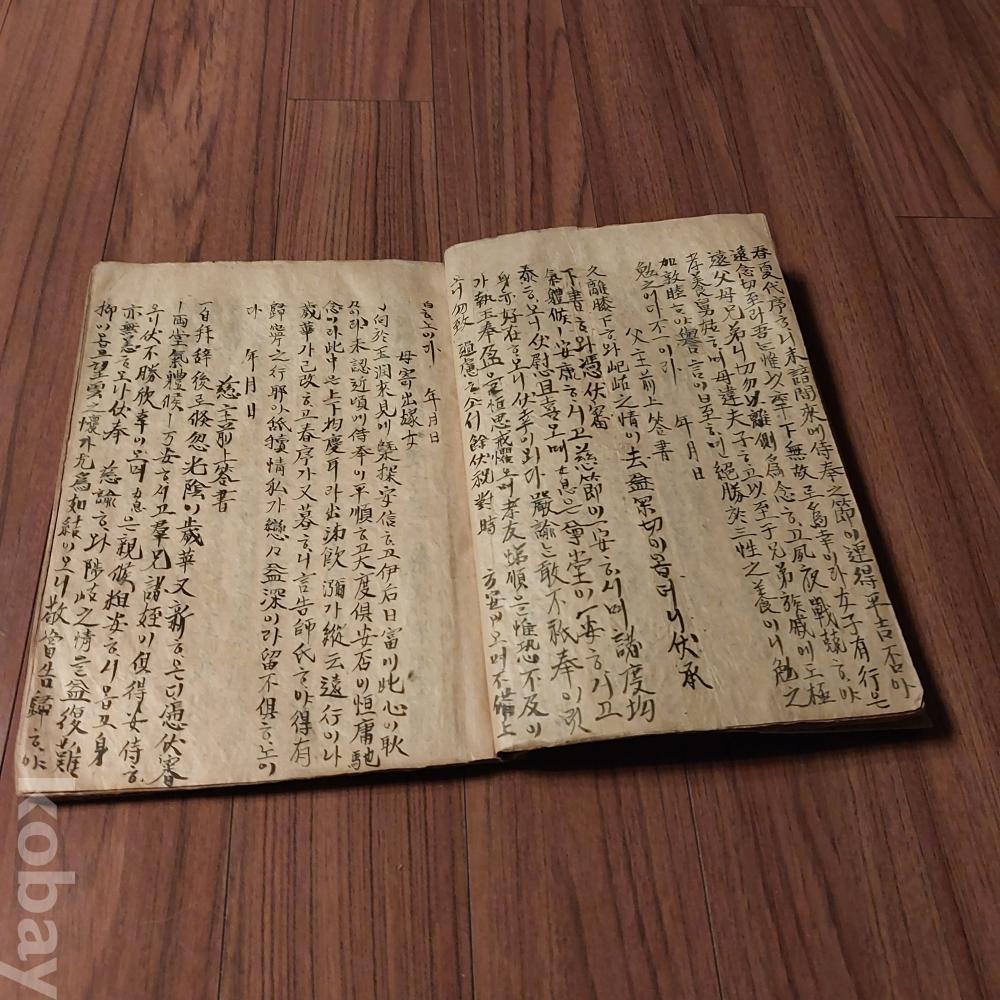 春夏代序ᄒᆞ니 未諳間來에 侍奉之節이 連得平吉否아
遠念切至라 吾는 惟以率下無故로 爲幸이라 女子有行은
遠父母兄弟니 切勿以離側爲念ᄒᆞ고 夙夜戰兢ᄒᆞ야
孝養舅姑ᄒᆞ며 毋違夫子ᄒᆞ고 以至于兄弟族戚에 工極
加敦睦ᄒᆞ야 譽言이 日至ᄒᆞ면 絕勝於三牲之養이니 勉之
勉之어다 不一이라 年 月 日
父主前上答書
久離膝下ᄒᆞ와 岵之情이 去益罙切이옵더니 伏承
下書ᄒᆞ와 憑伏審
氣體候 安康ᄒᆞ시고 慈節이 一安ᄒᆞ시며 諸度均
泰ᄒᆞ오니 伏慰且喜오며 息은 尊堂이 一安ᄒᆞ시고
身亦好在ᄒᆞ오니 伏幸이와다 嚴諭는 敢不祇奉이리
가 執玉奉盈은 恒思戒懼오며 孝友悌順은 惟恐不及이
오니 勿致 過慮ᄒᆞ쇼셔 餘伏祝對時 万安이오며 不備上
白ᄒᆞ노이다 年 月 日
母寄出嫁女
向於玉洞來見에 槩探字信ᄒᆞ고 伊后日富에 此心이 耿
耿이라 未認近頃에 侍奉이 平順ᄒᆞ고 大度俱安否이 恒庸馳
念이라 此中은 上下均慶耳라 出涕飮瀰가 縱云遠行이나
歲華가 已改ᄒᆞ고 春序가 又暮ᄒᆞ니 言告師氏ᄒᆞ야 得有
歸寧之行耶아 舐犢情私가 戀戀益深이라 留不俱ᄒᆞ노이
다 年 月 日
慈主前上答書
一自拜辭後로 倏忽光陰이 歲華又新ᄒᆞ은디 憑伏審
兩堂氣體候 万安ᄒᆞ시고 羣兄諸姪이 俱得安侍ᄒᆞ
오니 伏不勝欣幸이오며 息은 親候粗安ᄒᆞ시옵고 身
亦無恙ᄒᆞ오니 伏奉 慈諭ᄒᆞ와 陟岐之情은 益復難
抑이옵고 望雲一懷가 尤爲如結이오니 敬當告歸ᄒᆞ야
kobay